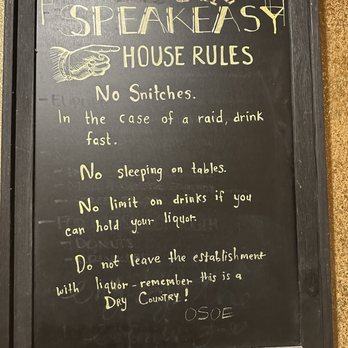 SPEAKEASY
HOUSE RULES
No Snitches.
In the case of a raid, drink
fast.
No sleeping on tables.
No limit on drinks if you
can hold your liquor.
Do not leave the establishment
with liquor - remember this is a
DRY COUNTRY!
OSOE